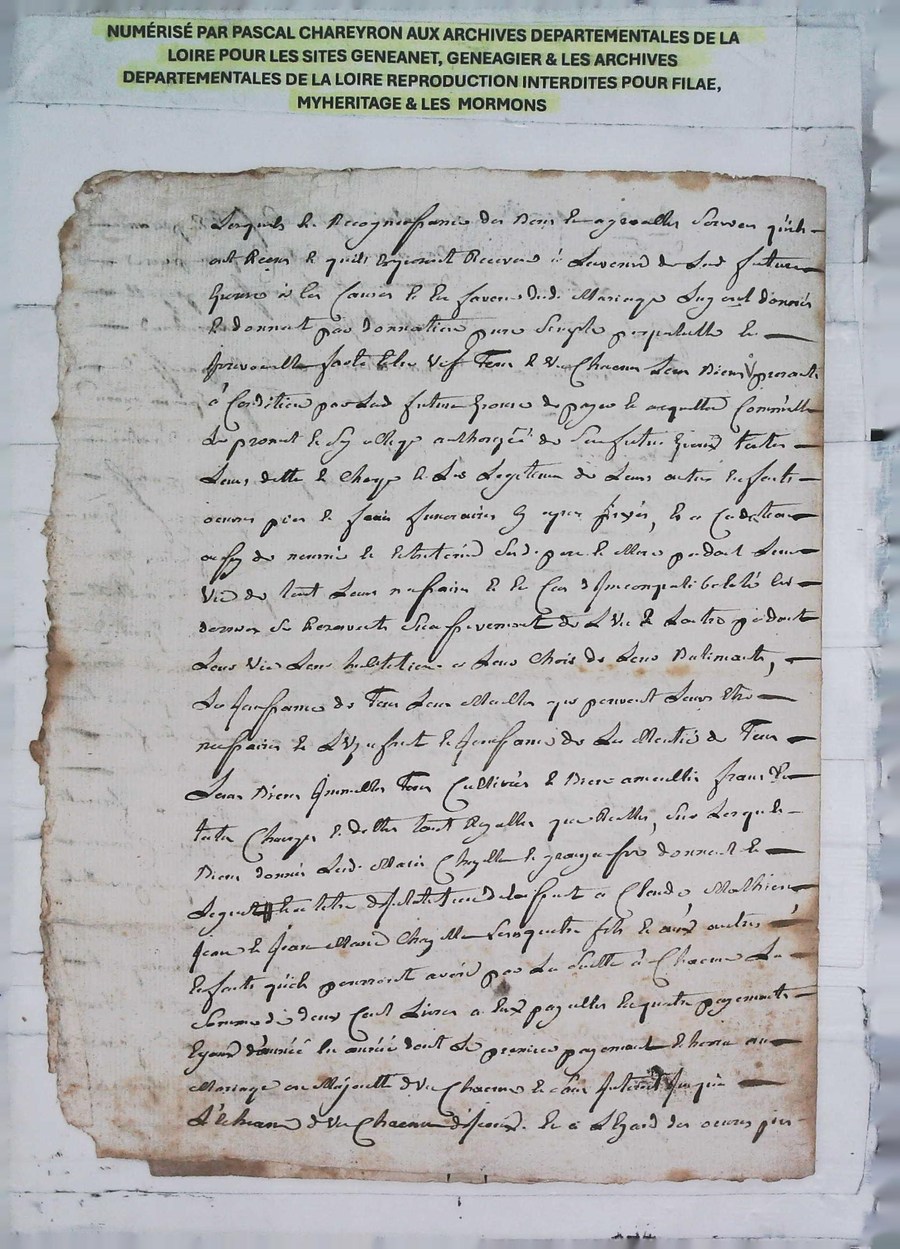 NUMÉRISÉ PAR PASCAL CHAREYRON AUX ARCHIVES DEPARTEMENTALES DE LA
LOIRE POUR LES SITES GENEANET, GENEAGIER & LES ARCHIVES
DEPARTEMENTALES DE LA LOIRE REPRODUCTION INTERDITES POUR FILAE,
MYHERITAGE & LES MORMONS
Lesquels En Recognoissance des Biens Et agreables Services quils
ont Receus Et quils Esperent Recevoir à Lavenir de Lad future
Epouse à les Causes Et En faveur dud. Mariage Luy ont donnés
Et donnent par donnation pure Simple perpetuelle Et
jrrevocable faite Entre Vifs Tous Et Un Chacun Leurs Biens presants
à Condition par Lad future Epouse de payer Et acquitter Comm'elle
Le promet Et Sy oblige authorisée de Son futur Epoux toutes
Leurs dette Et Charge Et Les Legitime de Leurs autres Enfants
oeuvres pies Et frais funeraires Cy apres fixés, Et a Condition
de nourrir Et Entretenir Sesd. pere Et Mere pendant Leur
Vie de tout Leurs nessaire Et En Cas d'Jncompatibilité Les
derniers Se Reservent Successivement de L'Un Et Lautre pendant
Leur Vie Leur habitation a Leur Choix de Leurs Batiments,
La Jouissance de Tous Leurs Meubles qui peuvent Leurs Etre
nessaires Et L'Usufruit Et Jouissance de La Moitié de Tous
Leurs Biens Jmmeubles Tous Cultivés Et Biens ameublis francs de
toute Charges Et dettes tant Royalles que Reelles, Sur Lesquels
Biens donnés Lesd. Mariés Et donnent Et
Leguent a titre d'Jnstitution a Claude, Mathieu
Jean Et Jean Marie Leurs quatre fils Et aux autres
Enfants qu'ils pourront avoir par La Suitte à Chacun La
Somme de deux Cent Livres a Eux payables En quatre payements
Egaux d'année En année dont Le premier payement Echerra au
Mariage ou Majorité d'Un Chacun Et Sans Jnterest Jusqu'a
L'Echeance d'Un Chacun d'Jceux. Et à L'Egard des oeuvres pies